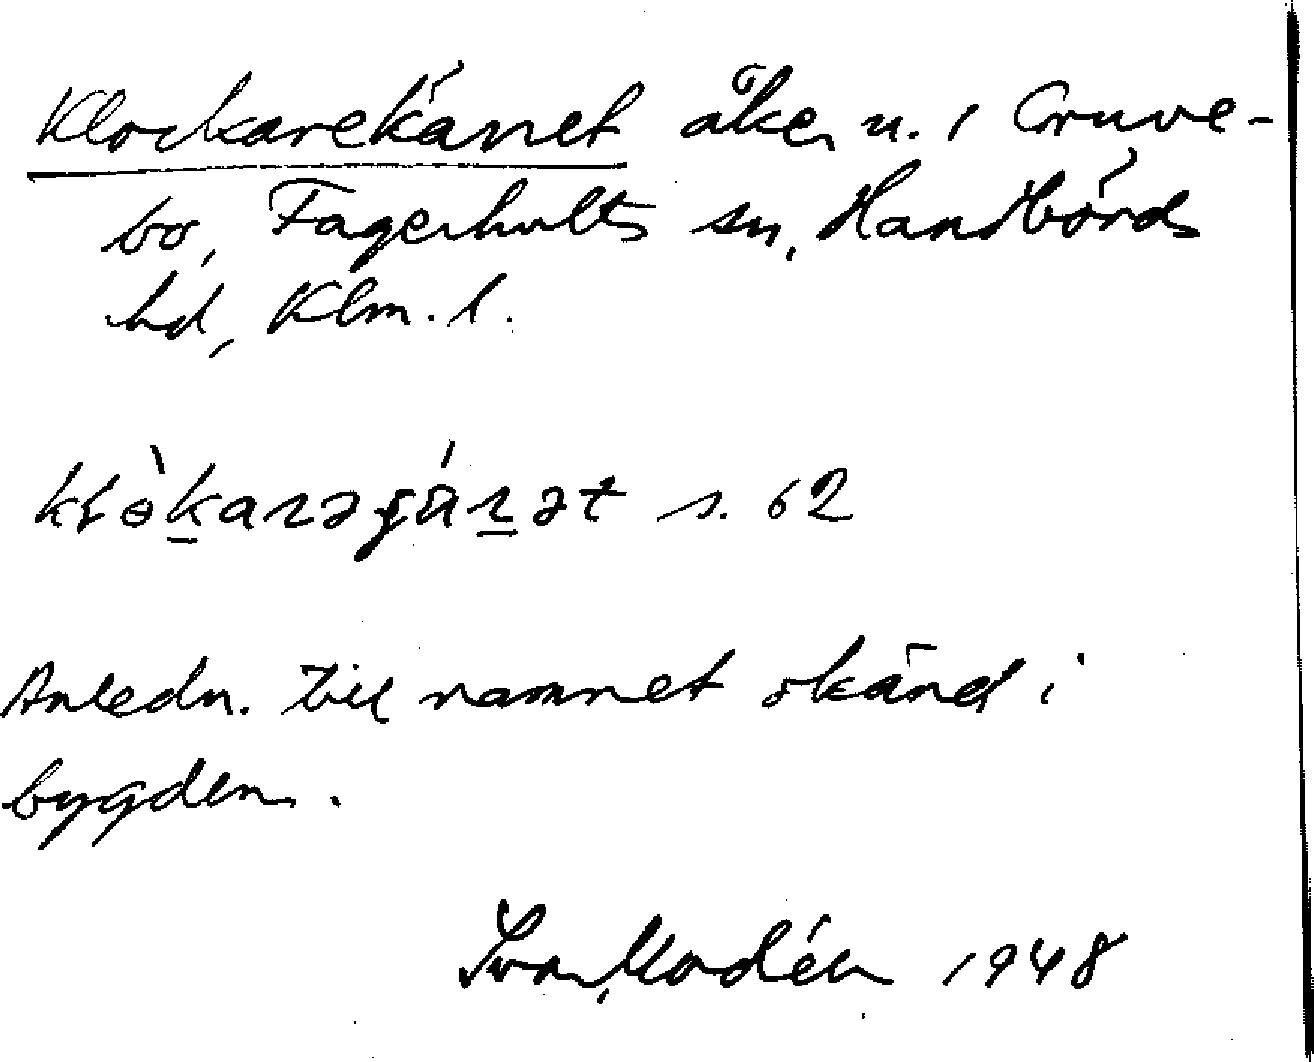 Klockarekärret åker u. / Gruve-
bo, Fagerhults sn, Handbörds
hd, Klm. l.
s. 62
Anledn. till namnet okänd i
bygden.
Ivar Modéer 1948